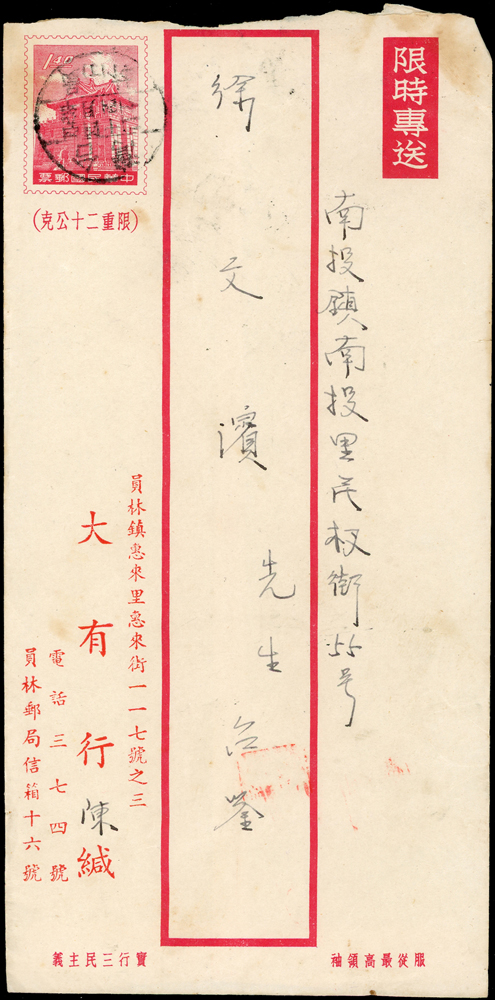 限時專送
南投鎮南投里民权街55号
徐文濱先生台鑒
1.40
中華民國郵票
(限重二十公克)
員林鎮惠來里惠來街一一七號之三
大有行陳緘
電話三七四號
員林郵局信箱十六號
服從最高領袖
實行三民主義